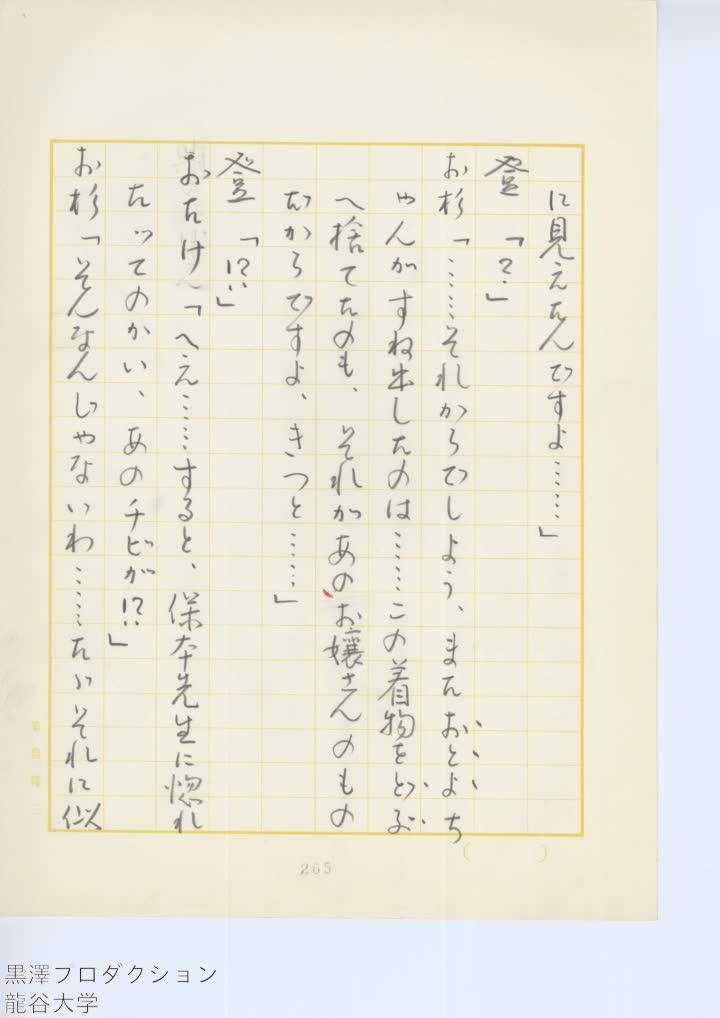 に見えたんですよ……」
登　「？」
お杉「……それからでしよう、またおとよち
やんがすね出したのは……この着物をどぶ
へ捨てたのも、それがあのお嬢さんのもの
だからですよ、きつと……」
登　「!?」
おたけ「へえ……すると、保本先生に惚れ
たってのかい、あのチビが!?」
お杉「そんなんじゃないわ……たゞそれに似
265
黒澤プロダクション
龍谷大学